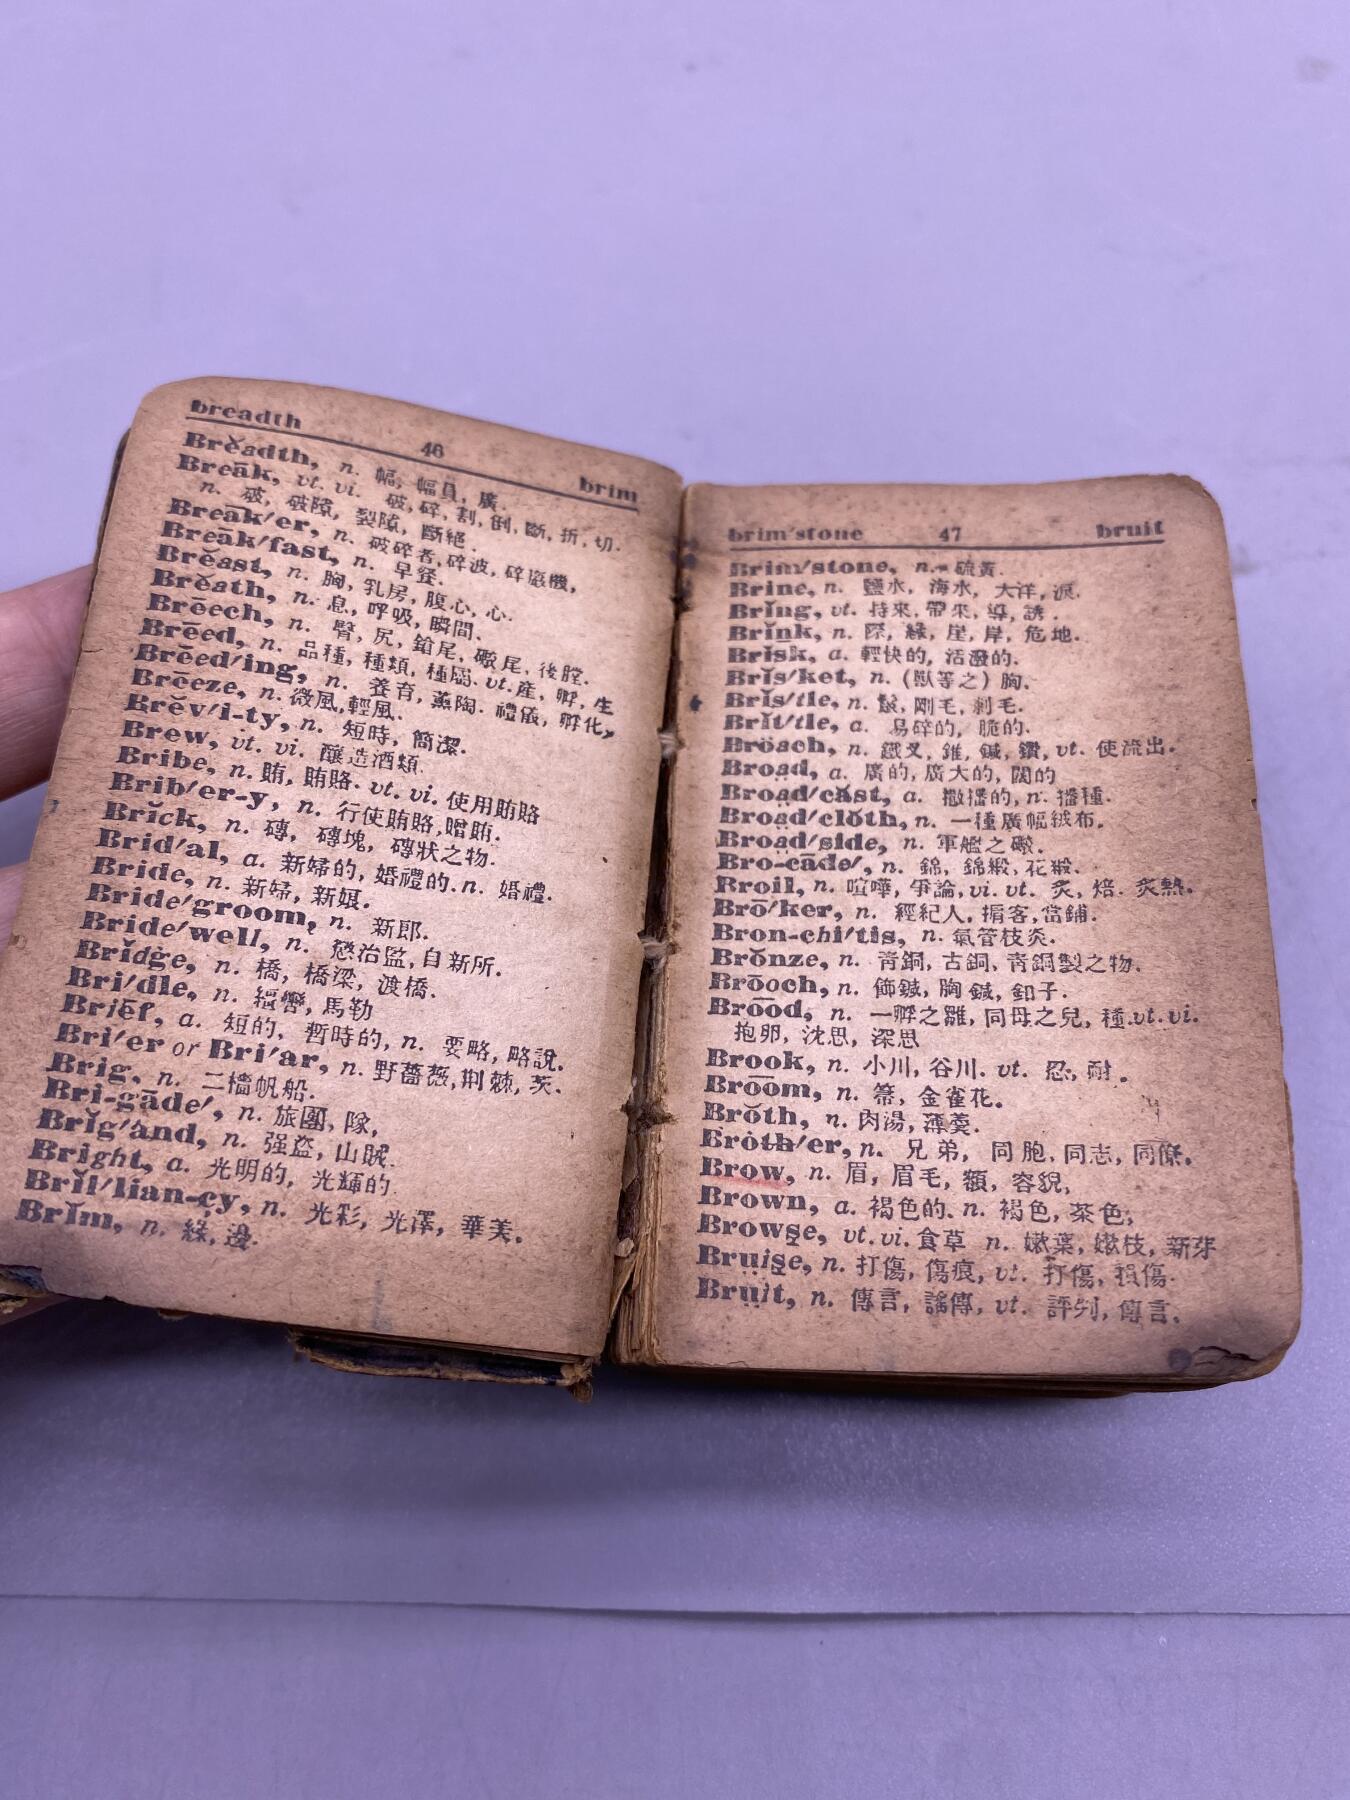 breadth 46 brim
Brĕadth, n. 幅, 幅員, 廣.
Breāk, vt. vi. 破, 碎, 割, 倒, 斷, 折, 切.
n. 破, 破隙, 裂隙, 斷絕.
Breāk′er, n. 破碎者, 碎波, 碎巖機,
Brĕak′fast, n. 早餐.
Brĕast, n. 胸, 乳房, 腹心, 心.
Brĕath, n. 息, 呼吸, 瞬間.
Brēech, n. 臀, 尻, 鎗尾, 礮尾, 後膛.
Brēed, n. 品種, 種類, 種屬. vt. 產, 孵, 生
Brēed′ing, n. 養育, 薰陶. 禮儀, 孵化,
Brēeze, n. 微風, 輕風.
Brĕv′i-ty, n. 短時, 簡潔.
Brew, vt. vi. 釀造酒類.
Bribe, n. 賄, 賄賂. vt. vi. 使用賄賂
Brib′er-y, n. 行使賄賂, 贈賄.
Brĭck, n. 磚, 磚塊, 磚狀之物.
Brid′al, a. 新婦的, 婚禮的. n. 婚禮.
Bride, n. 新婦, 新娘.
Bride′groom, n. 新郎.
Bride′well, n. 懲治監, 自新所.
Brĭdġe, n. 橋, 橋梁, 渡橋.
Bri′dle, n. 繮轡, 馬勒
Briēf, a. 短的, 暫時的, n. 要略, 略說.
Bri′er or Bri′ar, n. 野薔薇, 荆棘, 茨.
Brig, n. 二檣帆船.
Bri-gāde′, n. 旅團, 隊,
Brĭg′and, n. 强盜, 山賊.
Bright, a. 光明的, 光輝的
Brĭl′lian-çy, n. 光彩, 光澤, 華美.
Brĭm, n. 緣, 邊.
brim′stone 47 bruit
Brim′stone, n. 硫黃.
Brine, n. 鹽水, 海水, 大洋, 淚.
Brĭng, vt. 持來, 帶來, 導, 誘.
Brĭnk, n. 際, 緣, 崖, 岸, 危地.
Brĭsk, a. 輕快的, 活潑的.
Brĭs′ket, n. (獸等之) 胸.
Brĭs′tle, n. 鬃, 剛毛, 刺毛.
Brĭt′tle, a. 易碎的, 脆的.
Brōach, n. 鐵叉, 錐, 鍼, 鑽, vt. 使流出.
Broad, a. 廣的, 廣大的, 闊的
Broad′căst, a. 撒播的, n. 播種.
Broad′clŏth, n. 一種廣幅絨布.
Broad′side, n. 軍艦之礮.
Bro-cāde′, n. 錦, 錦緞, 花緞.
Broil, n. 喧嘩, 爭論, vi. vt. 炙, 焙. 炙熱.
Brō′ker, n. 經紀人, 掮客, 當鋪.
Bron-chi′tis, n. 氣管枝炎.
Brŏnze, n. 靑銅, 古銅, 靑銅製之物.
Brōoch, n. 飾鍼, 胸鍼, 釦子.
Bro͞od, n. 一孵之雛, 同母之兒, 種. vt. vi.
抱卵, 沈思, 深思
Brook, n. 小川, 谷川. vt. 忍, 耐.
Bro͞om, n. 箒, 金雀花.
Brŏth, n. 肉湯, 薄羹.
Brȯth′er, n. 兄弟, 同胞, 同志, 同僚.
Brow, n. 眉, 眉毛, 額, 容貌,
Brown, a. 褐色的. n. 褐色, 茶色;
Browse, vt. vi. 食草 n. 嫩葉, 嫩枝, 新芽
Bruise, n. 打傷, 傷痕, vt. 打傷, 損傷.
Bruit, n. 傳言, 謠傳, vt. 評判, 傳言.